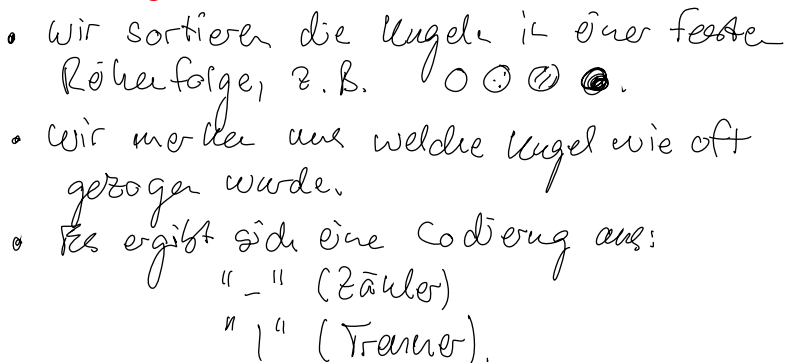 • Wir sortieren die Kugeln in einer festen
Reihenfolge, z.B.
• Wir merken uns welche Kugel wie oft
gezogen wurde.
• Es ergibt sich eine Codierung aus:
"–" (Zähler)
"|" (Trenner).